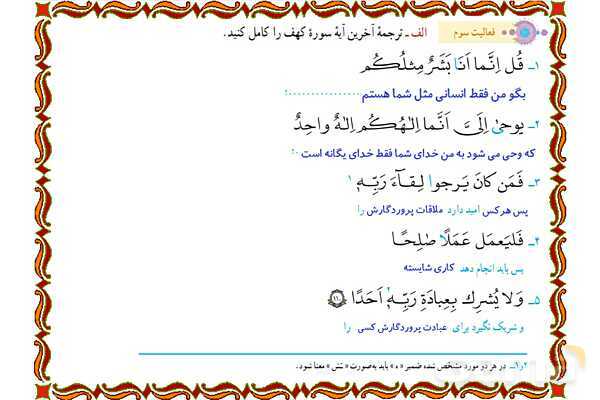 فعالیت سوم
الف ـ ترجمهٔ آخرین آیهٔ سورهٔ کهف را کامل کنید.
۱ـ قُل اِنَّما اَنَا بَشَرٌ مِثلُكُم
بگو من فقط انسانی مثل شما هستم................!
۲ـ يوحىٰ اِلَیَّ اَنَّما اِلٰهُكُم اِلٰهٌ واحِدٌ
که وحی می شود به من خدای شما فقط خدای یگانه است.!
۳ـ فَمَن كانَ يَرجوا لِقآءَ رَبِّهٖ ۱
پس هرکس امید دارد ملاقات پروردگارش را
۴ـ فَليَعمَل عَمَلًا صٰلِحًا
پس باید انجام دهد کاری شایسته
۵ـ وَلا يُشرِك بِعِبادَةِ رَبِّهٖ ۲ اَحَدًا ﴿١١٠﴾
و شریک نگیرد برای عبادت پروردگارش کسی را
۱و۲ـ در هر دو مورد مشخص شده ضمیر «ه» باید به‌صورت «ـَش» معنا شود.